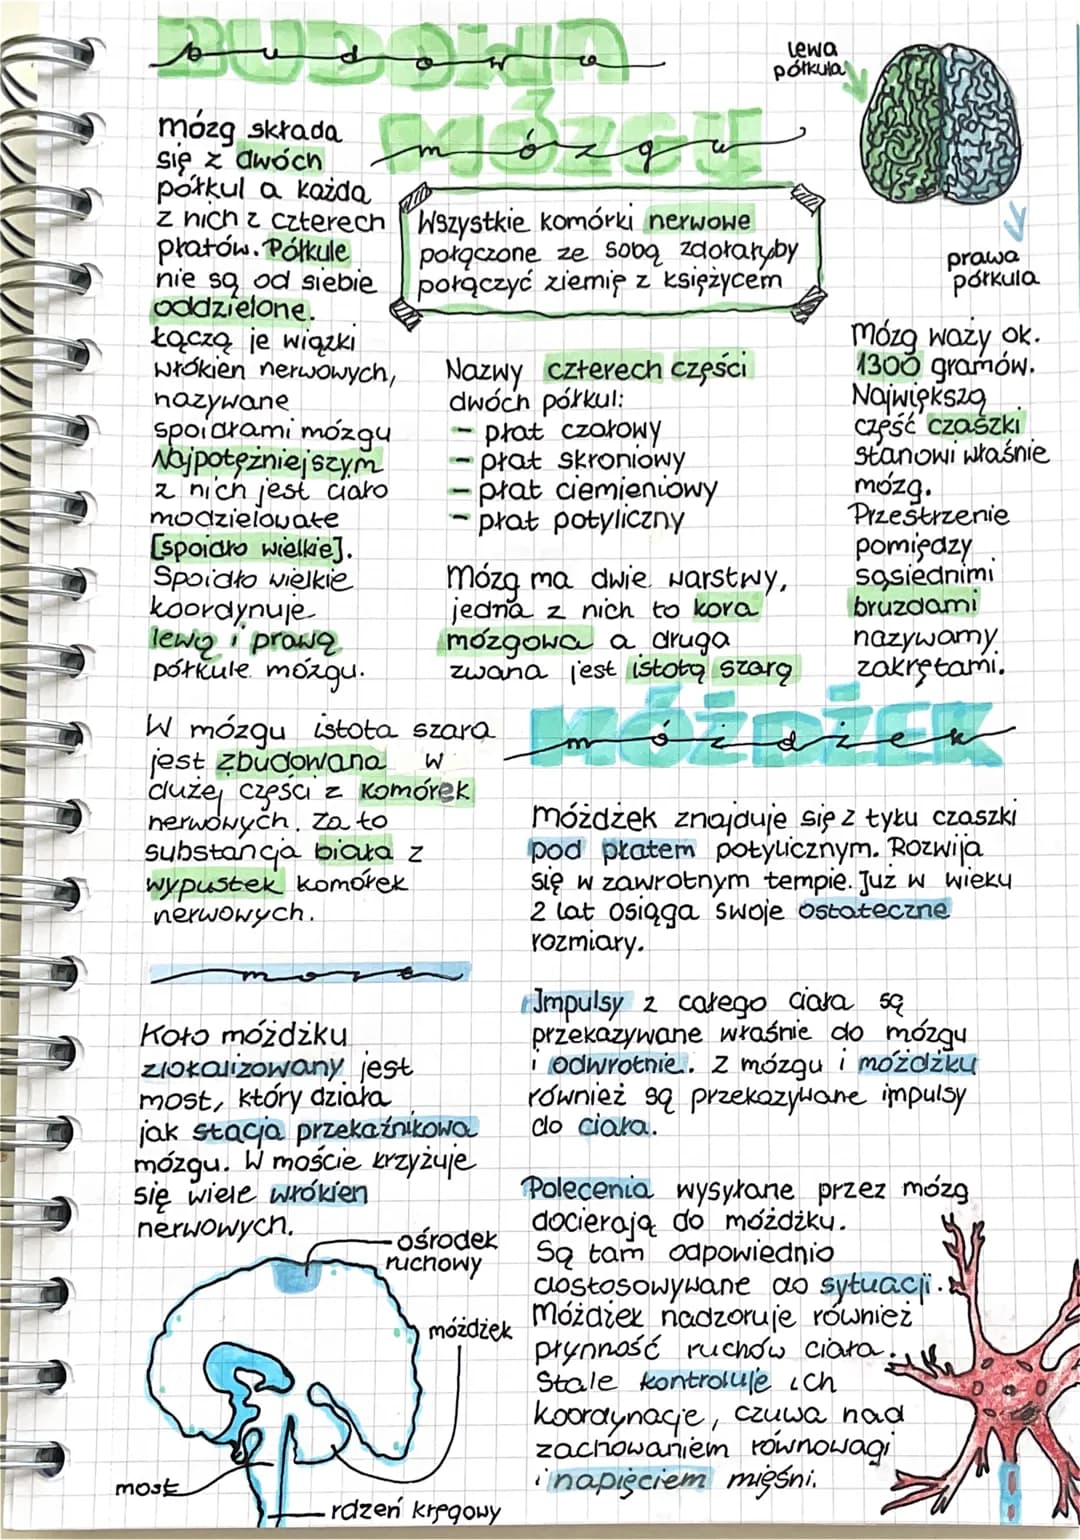 BUDOWA
budowa
MÓZGU
mózgu
lewa
półkula
prawa
półkula
mózg składa
się z dwóch
półkul a każda
z nich z czterech
płatów. Półkule
nie są od siebie
oddzielone.
Łączą je wiązki
włókien nerwowych,
nazywane
spoidłami mózgu
Najpotężniejszym
z nich jest ciało
modzelowate
[spoidło wielkie].
Spoidło wielkie
koordynuje
lewą i prawą
półkule mózgu.
Wszystkie komórki nerwowe
połączone ze sobą zdołałyby
połączyć ziemię z księżycem
Nazwy czterech części
dwóch półkul:
- płat czołowy
- płat skroniowy
- płat ciemieniowy
- płat potyliczny
Mózg ma dwie warstwy,
jedna z nich to kora
mózgowa a druga
zwana jest istotą szarą
Mózg waży ok.
1300 gramów.
Największą
część czaszki
stanowi właśnie
mózg.
Przestrzenie
pomiędzy
sąsiednimi
bruzdami
nazywamy
zakrętami.
W mózgu istota szara
jest zbudowana w
dużej części z komórek
nerwowych. Za to
substancja biała z
wypustek komórek
nerwowych.
MÓŻDŻEK
móżdżek
Móżdżek znajduje się z tyłu czaszki
pod płatem potylicznym. Rozwija
się w zawrotnym tempie. Już w wieku
2 lat osiąga swoje ostateczne
rozmiary.
Impulsy z całego ciała są
przekazywane właśnie do mózgu
i odwrotnie. Z mózgu i móżdżku
również są przekazywane impulsy
do ciała.
Polecenia wysyłane przez mózg
docierają do móżdżku.
Są tam odpowiednio
dostosowywane do sytuacji.
Móżdżek nadzoruje również
płynność ruchów ciała.
Stale kontroluje ich
koordynację, czuwa nad
zachowaniem równowagi
i napięciem mięśni.
Koło móżdżku
zlokalizowany jest
most, który działa
jak stacja przekaźnikowa
mózgu. W moście krzyżuje
się wiele włókien
nerwowych.
ośrodek
ruchowy
móżdżek
most
rdzeń kręgowy